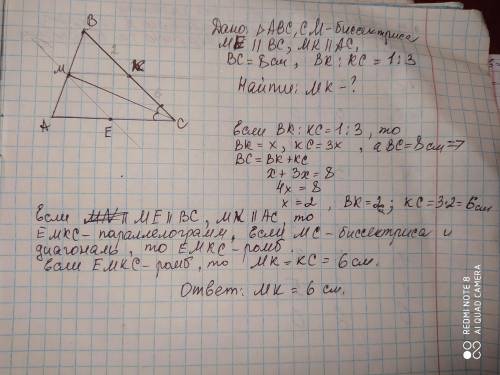 B
2
M
K
6
A
E
C
Дано: △ABC, CM-биссектриса,
ME || BC, MK || AC,
BC = 8см, BK : KC = 1:3
Найти: MK-?
Если BK : KC = 1:3, то
BK = x, KC = 3x, а BC = 8 см =>
BC = BK + KC
x + 3x = 8
4x = 8
x = 2, BK = 2; KC = 3·2 = 6см
Если ME || BC, MK || AC, то
EMKC-параллелограмм, если MC-биссектриса и
диагональ, то EMKC-ромб.
Если EMKC-ромб, то MK = KC = 6 см.
Ответ: MK = 6 см.
REDMI NOTE 8
AI QUAD CAMERA